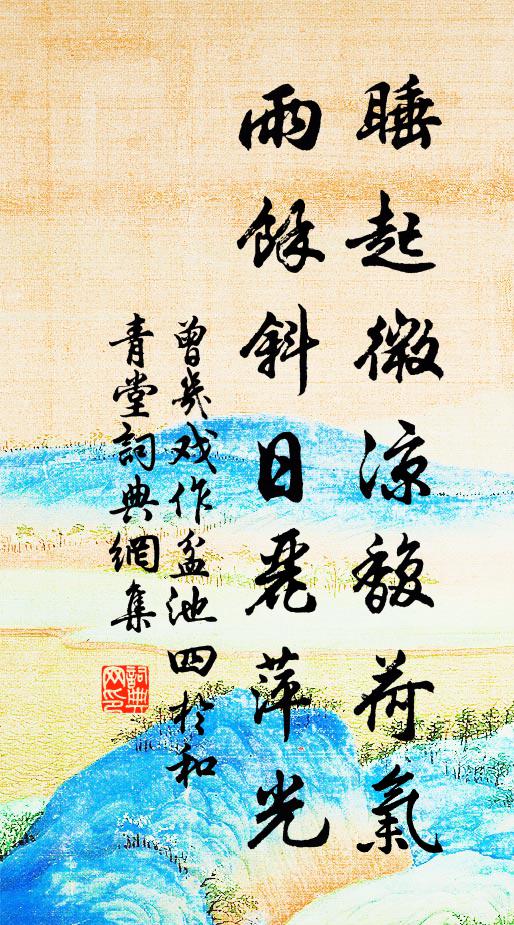 睡起微涼馥荷氣
雨餘斜日麗萍光
曾幾戏作盆池四於和
青堂詞典網集
詞典网印